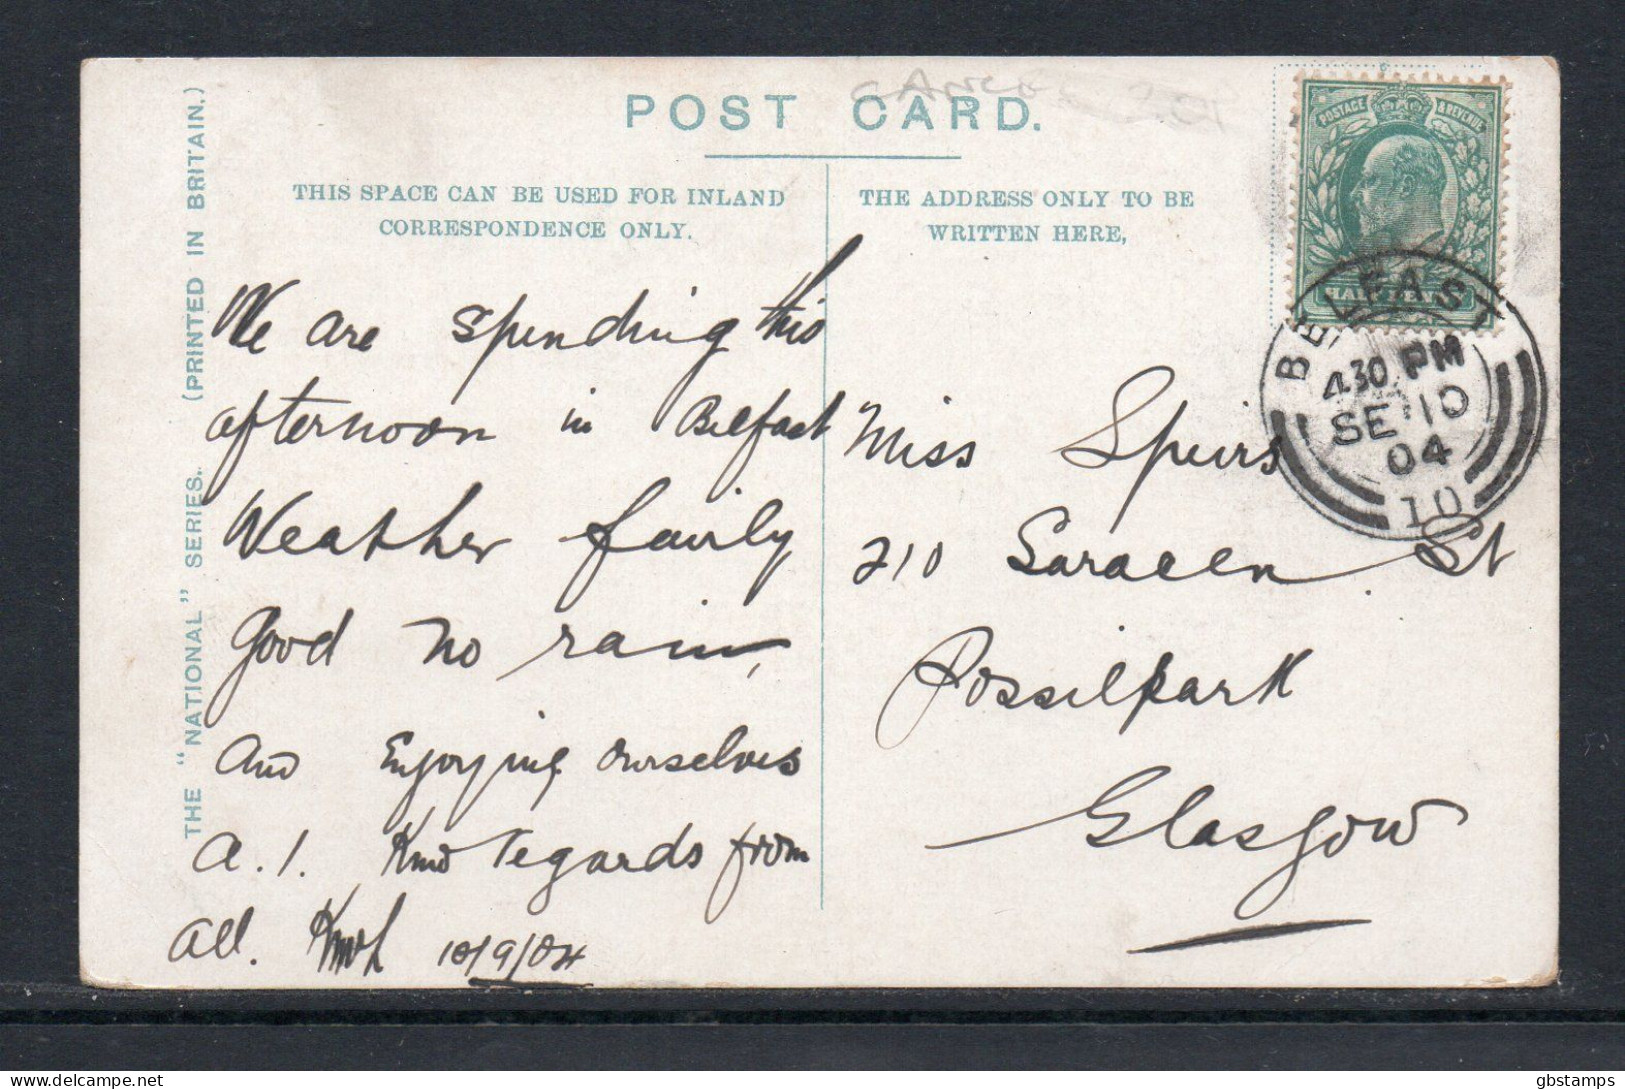 POST CARD.
THIS SPACE CAN BE USED FOR INLAND
CORRESPONDENCE ONLY.
THE ADDRESS ONLY TO BE
WRITTEN HERE,
THE "NATIONAL" SERIES. (PRINTED IN BRITAIN.)
We are spending this
afternoon in Belfast
Weather fairly
good no rain,
and Enjoying ourselves
A.1. Kind regards from
all.
10/9/04
Miss Speirs
210 Saracen St
Possilpark
Glasgow
POSTAGE & REVENUE
HALF PENNY
BELFAST
4.30 PM
SE 10
04
10
gbstamps